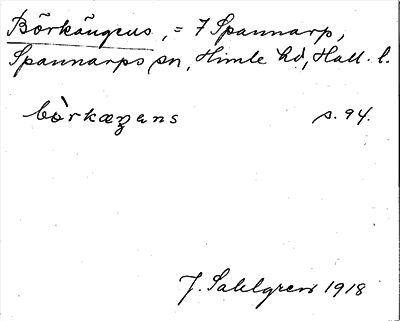 Börkängens, = 7 Spannarp,
Spannarps sn, Himle hd, Hall. l.
bo̔rkæŋəns s. 94.
J. Sahlgren 1918